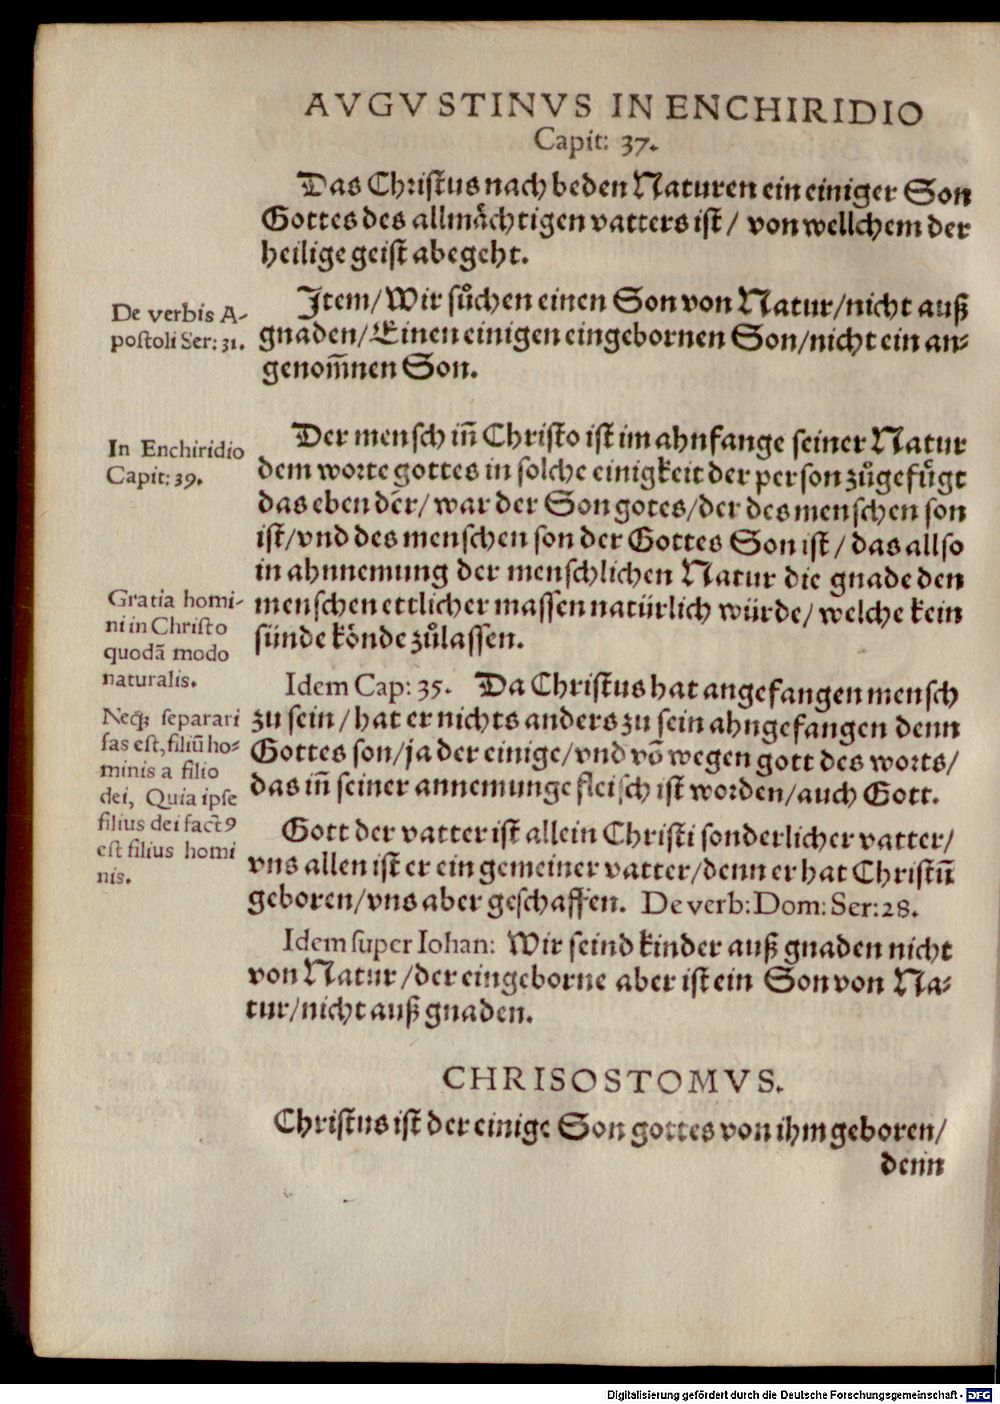 AVGVSTINVS IN ENCHIRIDIO
Capit: 37.
Das Christus nach beden Naturen ein einiger Son
Gottes des allmaͤchtigen vatters ist/ von wellchem der
heilige geist abegeht.
De verbis A-
postoli Ser: 31.
Item/Wir suͦchen einen Son von Natur/nicht auß
gnaden/Einen einigen eingebornen Son/nicht ein an-
genom̃nen Son.
In Enchiridio
Capit: 39.
Der mensch in̄ Christo ist im ahnfange seiner Natur
dem worte gottes in solche einigkeit der person zuͦgefuͤgt
das eben dēr/ war der Son gotes/der des menschen son
ist/vnd des menschen son der Gottes Son ist/ das allso
in ahnnemung der menschlichen Natur die gnade den
menschen ettlicher massen natürlich würde/ welche kein
sünde koͤnde zuͦlassen.
Gratia homi-
ni in Christo
quodā modo
naturalis.
Idem Cap: 35. Da Christus hat angefangen mensch
zu sein/hat er nichts anders zu sein ahngefangen denn
Gottes son/ja der einige/vnd vō wegen gott des worts/
das in̄ seiner annemunge fleisch ist worden/auch Gott.
Neqꝫ separari
fas est, filiū ho-
minis a filio
dei, Quia ipse
filius dei factꝰ
est filius homi
nis.
Gott der vatter ist allein Christi sonderlicher vatter/
vns allen ist er ein gemeiner vatter/denn er hat Christū
geboren/vns aber geschaffen. De verb: Dom: Ser: 28.
Idem super Iohan: Wir seind kinder auß gnaden nicht
von Natur/der eingeborne aber ist ein Son von Na-
tur/nicht auß gnaden.
CHRISOSTOMVS.
Christus ist der einige Son gottes von ihm geboren/
denn
Digitalisierung gefördert durch die Deutsche Forschungsgemeinschaft - DFG